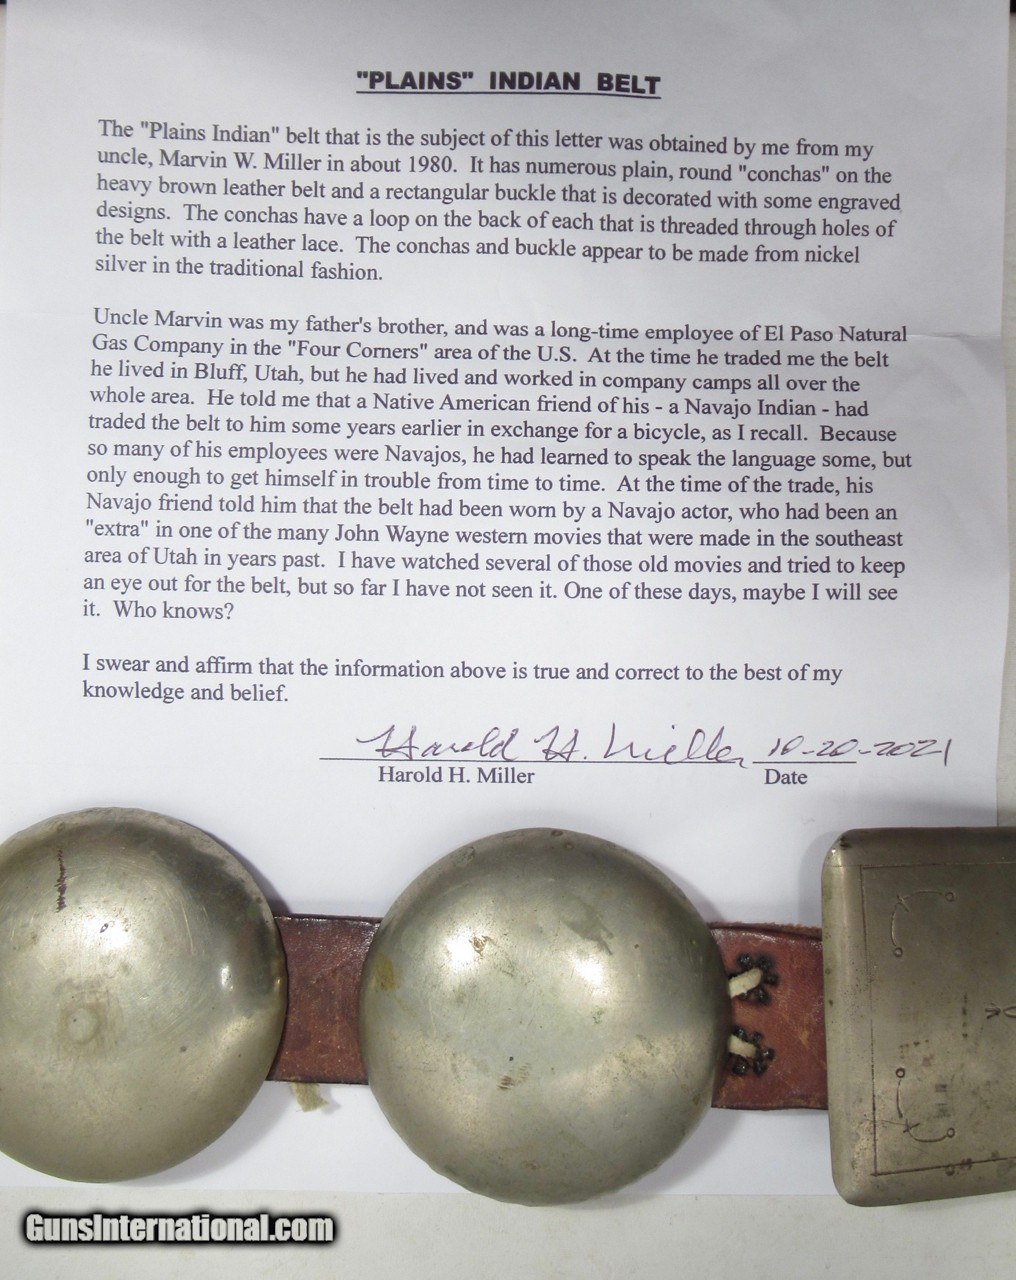 "PLAINS" INDIAN BELT
The "Plains Indian" belt that is the subject of this letter was obtained by me from my
uncle, Marvin W. Miller in about 1980. It has numerous plain, round "conchas" on the
heavy brown leather belt and a rectangular buckle that is decorated with some engraved
designs. The conchas have a loop on the back of each that is threaded through holes of
the belt with a leather lace. The conchas and buckle appear to be made from nickel
silver in the traditional fashion.
Uncle Marvin was my father's brother, and was a long-time employee of El Paso Natural
Gas Company in the "Four Corners" area of the U.S. At the time he traded me the belt
he lived in Bluff, Utah, but he had lived and worked in company camps all over the
whole area. He told me that a Native American friend of his - a Navajo Indian - had
traded the belt to him some years earlier in exchange for a bicycle, as I recall. Because
so many of his employees were Navajos, he had learned to speak the language some, but
only enough to get himself in trouble from time to time. At the time of the trade, his
Navajo friend told him that the belt had been worn by a Navajo actor, who had been an
"extra" in one of the many John Wayne western movies that were made in the southeast
area of Utah in years past. I have watched several of those old movies and tried to keep
an eye out for the belt, but so far I have not seen it. One of these days, maybe I will see
it. Who knows?
I swear and affirm that the information above is true and correct to the best of my
knowledge and belief.
Harold H. Miller 10-20-2021
Harold H. Miller Date
GunsInternational.com